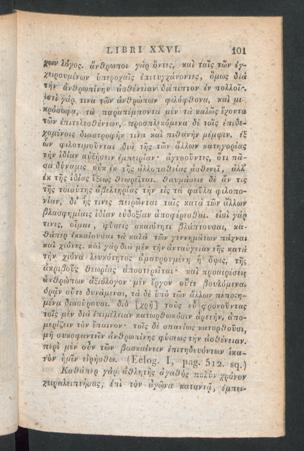 LIBRI XXVI. 101
λόγος. ἄνθρωποι γὰρ ὄντες, καὶ ταῖς τῶν ἐγ-
χειρουμένων ὑπεροχαῖς ἐπιτυγχάνοντες, ὅμως διὰ
τὴν ἀνθρωπίνην ἀσθένειαν διέπιπτον ἐν πολλοῖς.
ἔστι γάρ τινα τῶν ἀνθρώπων φιλόφθονα, καὶ μι-
τὰ παραπέμποντα μὲν τὰ καλῶς ἔχοντα
τῶν
διαστροφήν τινα καὶ πιθανὴν μέμψιν. ἐξ
ὧν φιλοτιμοῦνται διὰ τῆς τῶν ἄλλων κατηγορίας
τὴν ἰδίαν αὔξειν ἐμπειρίαν· ἀγνοοῦντες, ὅτι πᾶ-
σα δύναμις οὐκ ἐκ τῆς ἀσθενεῖ, ἀλλ'
ἐκ τῆς ἰδίας ἕξεως θεωρεῖται. θαυμάσαι δὲ ἄν τις
τῆς τοιαύτης ἀβελτηρίας τὴν εἰς τὰ φαῦλα φιλοπο-
νίαν, δι' ἧς τινες πειρῶνται ταῖς κατὰ τῶν ἄλλων
βλασφημίαις ἰδίαν εὐδοξίαν ἀποφέρεσθαι. εἰσὶ γάρ
τινες, οἶμαι, φύσεις βλάπτουσαι, κα-
θάπερ τὰ καλὰ τῶν γεννημάτων πάχναι
καὶ χιόνες. καὶ γὰρ διὰ μὲν τὴν ἀνταύγειαν τῆς κατὰ
τὴν χιόνα λευκότητος ἡ ὄψις, τῆς
ἀκριβοῦς θεωρίας ἀποστερεῖται· καὶ προαιρέσεις
ἀνθρώπων ἀξιόλογον μὲν ἔργον οὔτε βουλόμεναι
δρᾷν οὔτε δυνάμεναι, τὰ δὲ ὑπὸ τῶν ἄλλων πεπραγ-
μένα διασύρουσαι. διὸ [χρὴ] τοὺς εὖ φρονοῦντας
τοῖς μὲν διὰ ἐπιμέλειαν κατωρθωκόσιν ἀρετὴν, ἀπο-
μερίζειν τὸν ἔπαινον· τοῖς δὲ σπανίως κατορθοῦσι,
μὴ συκοφαντεῖν ἀνθρωπίνης φύσεως τὴν ἀσθένειαν.
περὶ μὲν οὖν τῶν βασκαίνειν ἐπιτηδευόντων ἱκα-
νὸν ἡμῖν εἰρήσθω. (Eclog. I, pag. 512. sq.)
Καθάπερ γὰρ ἀθλητὴς ἀγαθὸς πολὺν χρόνον
ἐπὶ τὸν ἀγῶνα καταντᾷ, ἐμπει-